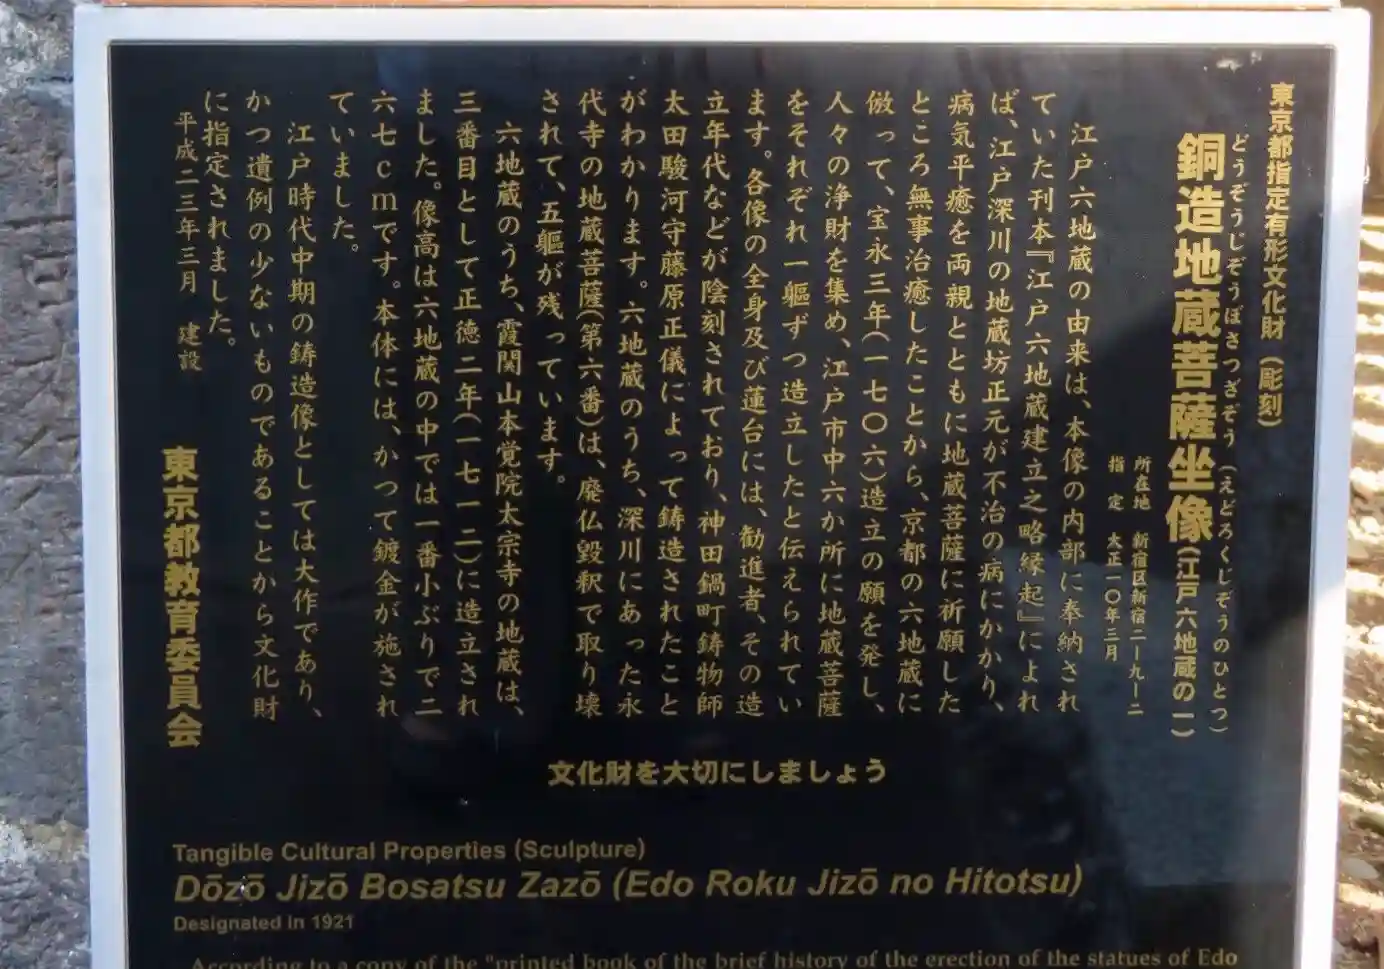 東京都指定有形文化財（彫刻）
どうぞうじぞうぼさつざぞう（えどろくじぞうのひとつ）
銅造地蔵菩薩坐像（江戸六地蔵の一）
所在地　新宿区新宿二－九－二
指　定　大正一〇年三月
江戸六地蔵の由来は、本像の内部に奉納され
ていた刊本『江戸六地蔵建立之略縁起』によれ
ば、江戸深川の地蔵坊正元が不治の病にかかり、
病気平癒を両親とともに地蔵菩薩に祈願した
ところ無事治癒したことから、京都の六地蔵に
倣って、宝永三年（一七〇六）造立の願を発し、
人々の浄財を集め、江戸市中六か所に地蔵菩薩
をそれぞれ一軀ずつ造立したと伝えられてい
ます。各像の全身及び蓮台には、勧進者、その造
立年代などが陰刻されており、神田鍋町鋳物師
太田駿河守藤原正儀によって鋳造されたこと
がわかります。六地蔵のうち、深川にあった永
代寺の地蔵菩薩（第六番）は、廃仏毀釈で取り壊
されて、五軀が残っています。
六地蔵のうち、霞関山本覚院太宗寺の地蔵は、
三番目として正徳二年（一七一二）に造立され
ました。像高は六地蔵の中では一番小ぶりで二
六七cmです。本体には、かつて鍍金が施され
ていました。
江戸時代中期の鋳造像としては大作であり、
かつ遺例の少ないものであることから文化財
に指定されました。
平成二三年三月　建設
東京都教育委員会
文化財を大切にしましょう
Tangible Cultural Properties (Sculpture)
Dōzō Jizō Bosatsu Zazō (Edo Roku Jizō no Hitotsu)
Designated in 1921
According to a copy of the "printed book of the brief history of the erection of the statues of Edo